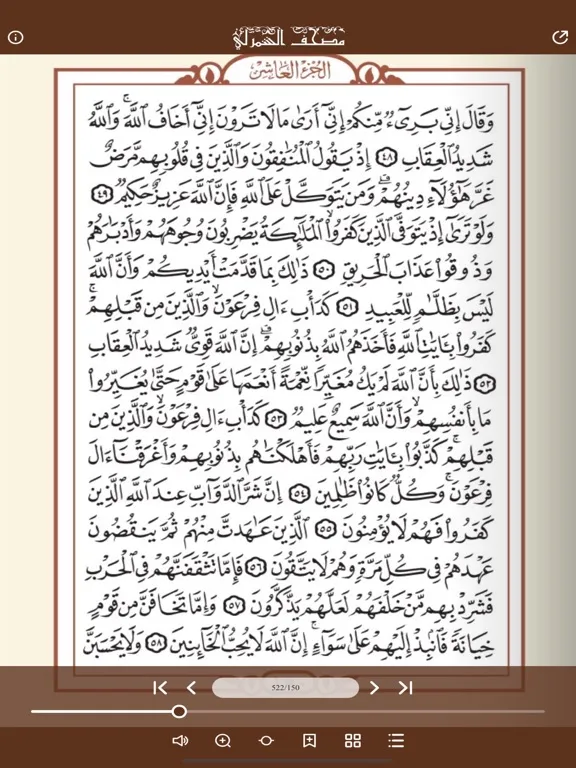 مصحف الشمرلي
الجزء العاشر
وَقَالَ إِنِّي بَرِيٓءٞ مِّنكُمۡ إِنِّيٓ أَرَىٰ مَا لَا تَرَوۡنَ إِنِّيٓ أَخَافُ ٱللَّهَۚ وَٱللَّهُ
شَدِيدُ ٱلۡعِقَابِ ٤٨ إِذۡ يَقُولُ ٱلۡمُنَٰفِقُونَ وَٱلَّذِينَ فِي قُلُوبِهِم مَّرَضٌ
غَرَّ هَٰٓؤُلَآءِ دِينُهُمۡۗ وَمَن يَتَوَكَّلۡ عَلَى ٱللَّهِ فَإِنَّ ٱللَّهَ عَزِيزٌ حَكِيمٞ ٤٩
وَلَوۡ تَرَىٰٓ إِذۡ يَتَوَفَّى ٱلَّذِينَ كَفَرُواْۙ ٱلۡمَلَٰٓئِكَةُ يَضۡرِبُونَ وُجُوهَهُمۡ وَأَدۡبَٰرَهُمۡ
وَذُوقُواْ عَذَابَ ٱلۡحَرِيقِ ٥٠ ذَٰلِكَ بِمَا قَدَّمَتۡ أَيۡدِيكُمۡ وَأَنَّ ٱللَّهَ
لَيۡسَ بِظَلَّٰمٖ لِّلۡعَبِيدِ ٥١ كَدَأۡبِ ءَالِ فِرۡعَوۡنَۙ وَٱلَّذِينَ مِن قَبۡلِهِمۡۚ
كَفَرُواْ بِـَٔايَٰتِ ٱللَّهِ فَأَخَذَهُمُ ٱللَّهُ بِذُنُوبِهِمۡۗ إِنَّ ٱللَّهَ قَوِيّٞ شَدِيدُ ٱلۡعِقَابِ
٥٢ ذَٰلِكَ بِأَنَّ ٱللَّهَ لَمۡ يَكُ مُغَيِّرٗا نِّعۡمَةً أَنۡعَمَهَا عَلَىٰ قَوۡمٍ حَتَّىٰ يُغَيِّرُواْ
مَا بِأَنفُسِهِمۡۙ وَأَنَّ ٱللَّهَ سَمِيعٌ عَلِيمٞ ٥٣ كَدَأۡبِ ءَالِ فِرۡعَوۡنَۙ وَٱلَّذِينَ مِن
قَبۡلِهِمۡۚ كَذَّبُواْ بِـَٔايَٰتِ رَبِّهِمۡ فَأَهۡلَكۡنَٰهُم بِذُنُوبِهِمۡ وَأَغۡرَقۡنَآ ءَالَ
فِرۡعَوۡنَۚ وَكُلّٞ كَانُواْ ظَٰلِمِينَ ٥٤ إِنَّ شَرَّ ٱلدَّوَآبِّ عِندَ ٱللَّهِ ٱلَّذِينَ
كَفَرُواْ فَهُمۡ لَا يُؤۡمِنُونَ ٥٥ ٱلَّذِينَ عَٰهَدتَّ مِنۡهُمۡ ثُمَّ يَنقُضُونَ
عَهۡدَهُمۡ فِي كُلِّ مَرَّةٖ وَهُمۡ لَا يَتَّقُونَ ٥٦ فَإِمَّا تَثۡقَفَنَّهُمۡ فِي ٱلۡحَرۡبِ
فَشَرِّدۡ بِهِم مَّنۡ خَلۡفَهُمۡ لَعَلَّهُمۡ يَذَّكَّرُونَ ٥٧ وَإِمَّا تَخَافَنَّ مِن قَوۡمٍ
خِيَانَةٗ فَٱنۢبِذۡ إِلَيۡهِمۡ عَلَىٰ سَوَآءٍۚ إِنَّ ٱللَّهَ لَا يُحِبُّ ٱلۡخَآئِنِينَ ٥٨ وَلَا يَحۡسَبَنَّ
522/150